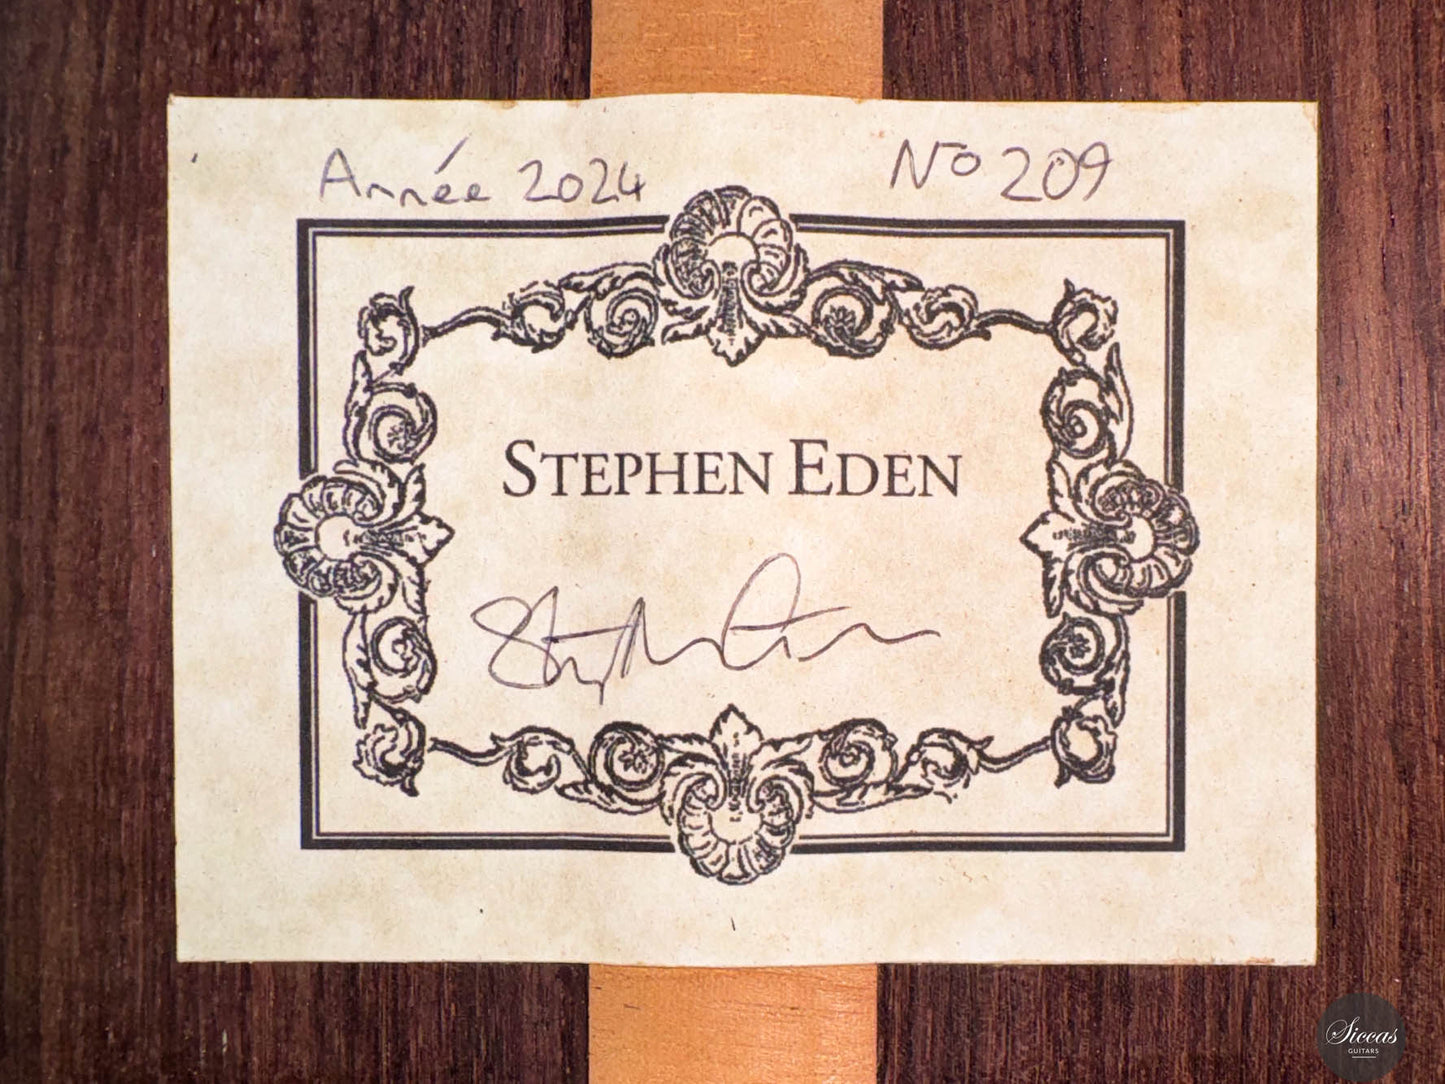 Année 2024 No 209
STEPHEN EDEN
Stephen Eden
Siccas
GUITARS